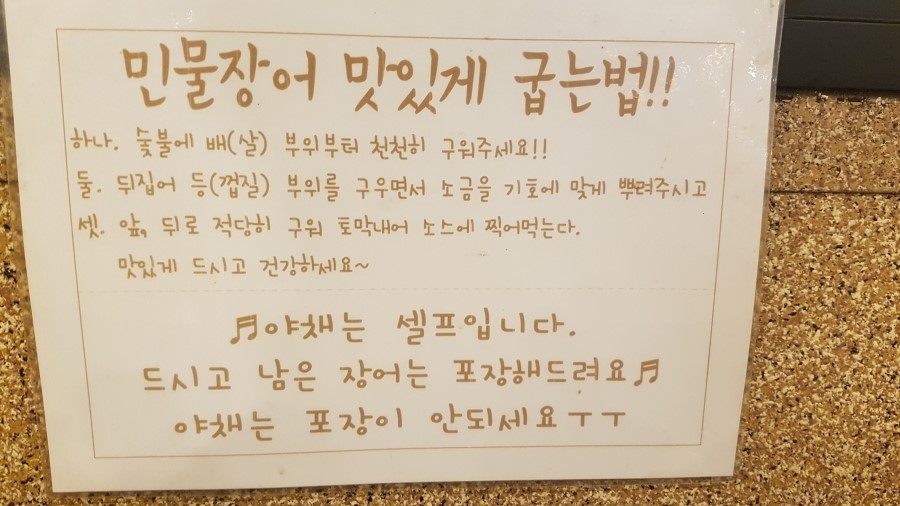 민물장어 맛있게 굽는법!!
하나. 숯불에 배(살) 부위부터 천천히 구워주세요!!
둘. 뒤집어 등(껍질) 부위를 구우면서 소금을 기호에 맞게 뿌려주시고
셋. 앞, 뒤로 적당히 구워 토막내어 소스에 찍어먹는다.
맛있게 드시고 건강하세요~
♬야채는 셀프입니다.
드시고 남은 장어는 포장해드려요♬
야채는 포장이 안되세요ㅜㅜ